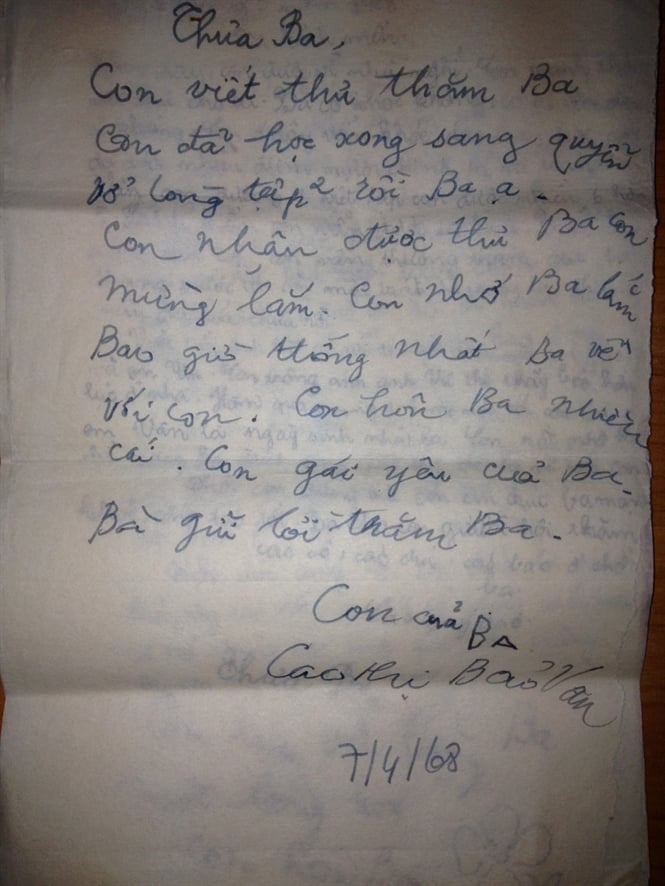 Thưa Ba,
Con viết thư thăm Ba
Con đã học xong sang quyển
vỡ lòng tập 2 rồi Ba ạ.
Con nhận được thư Ba con
mừng lắm. Con nhớ Ba lắm
Bao giờ thống nhất Ba về
với con. Con hôn Ba nhiều
cái. Con gái yêu của Ba.
Bà gửi lời thăm Ba.
Con của BA
Cao thị Bảo Vân
7/4/68